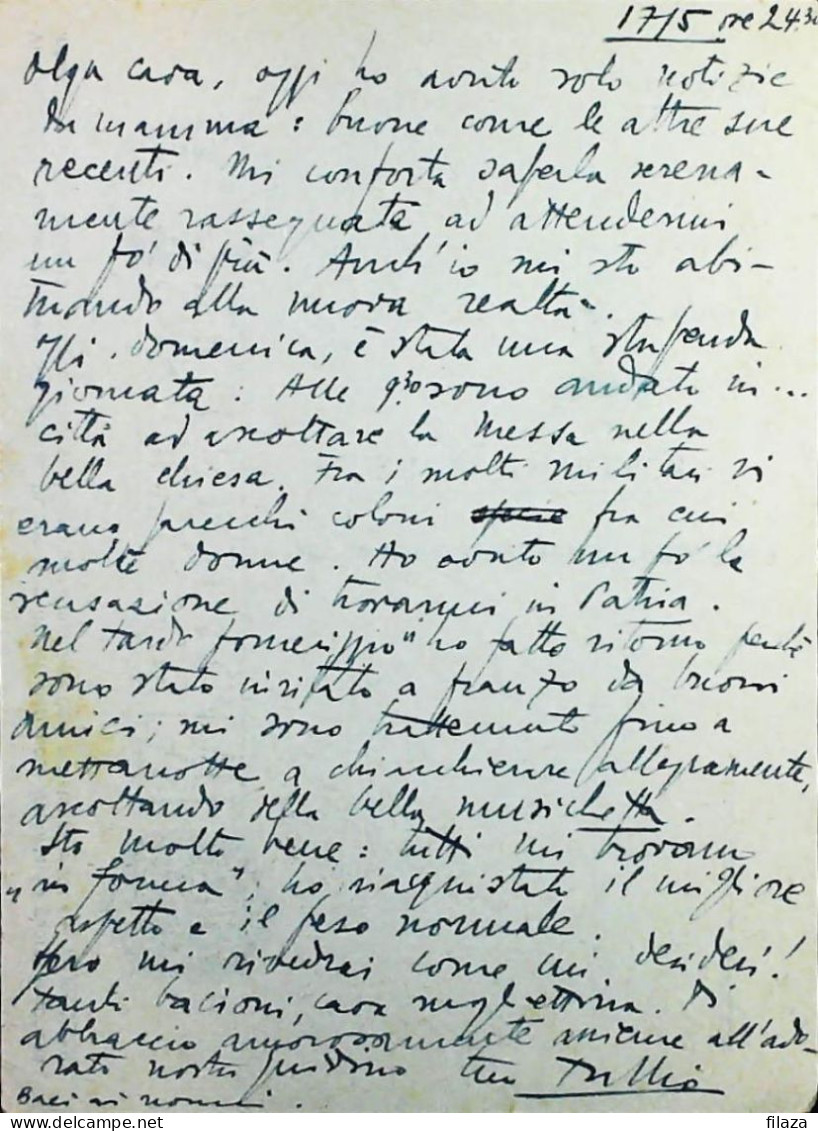 17/5 ore 24.30
Olga cara, oggi ho avuto solo notizie
da mamma: buone come le altre sue
recenti. Mi conforta saperla serena-
mente rassegnata ad attendermi
un po' di più. Anch'io mi sto abi-
tuando alla nuova realtà.
Oggi, domenica, è stata una stupenda
giornata: Alle 9³⁰ sono andato in...
città ad ascoltare la Messa nella
bella chiesa. Fra i molti militari vi
erano parecchi coloni fra cui
molte donne. Ho avuto un po' la
sensazione di trovarmi in Patria.
Nel tardo pomeriggio ho fatto ritorno perché
sono stato invitato a pranzo da buoni
amici; mi sono trattenuto fino a
mezzanotte a chiacchierare allegramente,
ascoltando della bella musichetta.
Sto molto bene: tutti mi trovano
"in forma"; ho riacquistato il migliore
aspetto e il peso normale.
Spero mi rivedrai come mi desideri!
Tanti bacioni, cara mogliettina. Ti
abbraccio amorosamente assieme all'ado-
rato nostro Guidino tuo Tullio
Baci ai nonni.
filaza